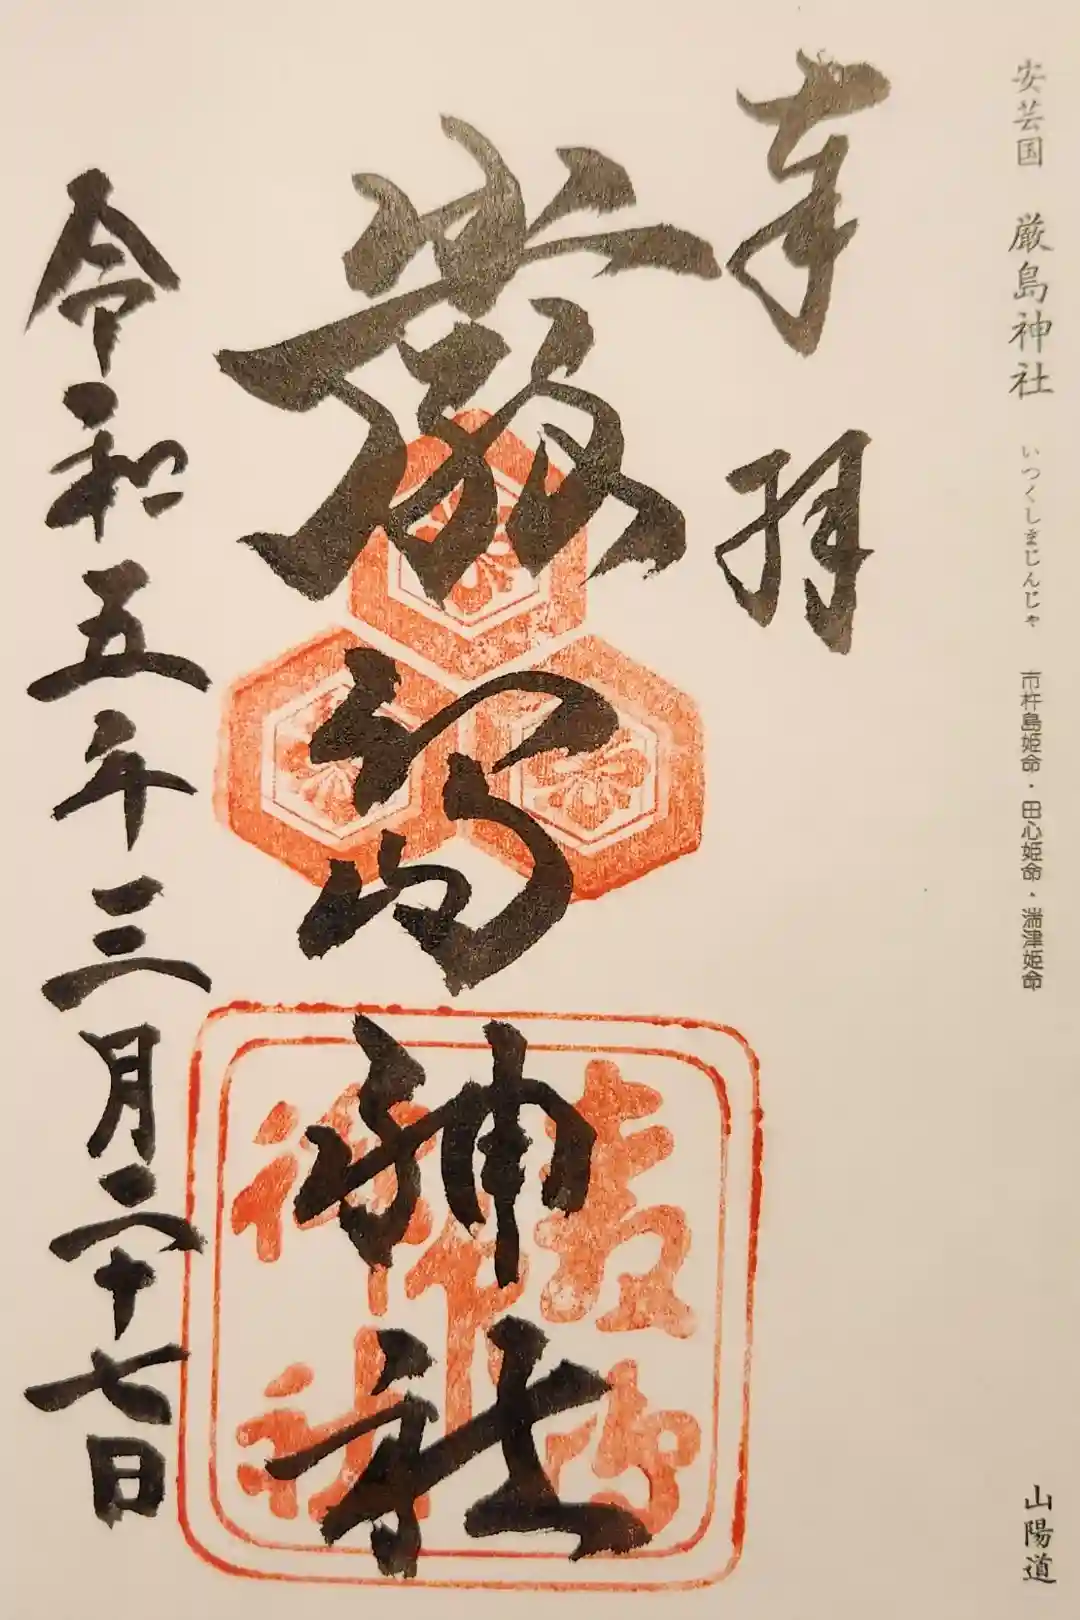 安芸国 厳島神社 いつくしまじんじゃ 市杵島姫命・田心姫命・湍津姫命
山陽道
奉拝
厳島神社
令和五年三月二十七日